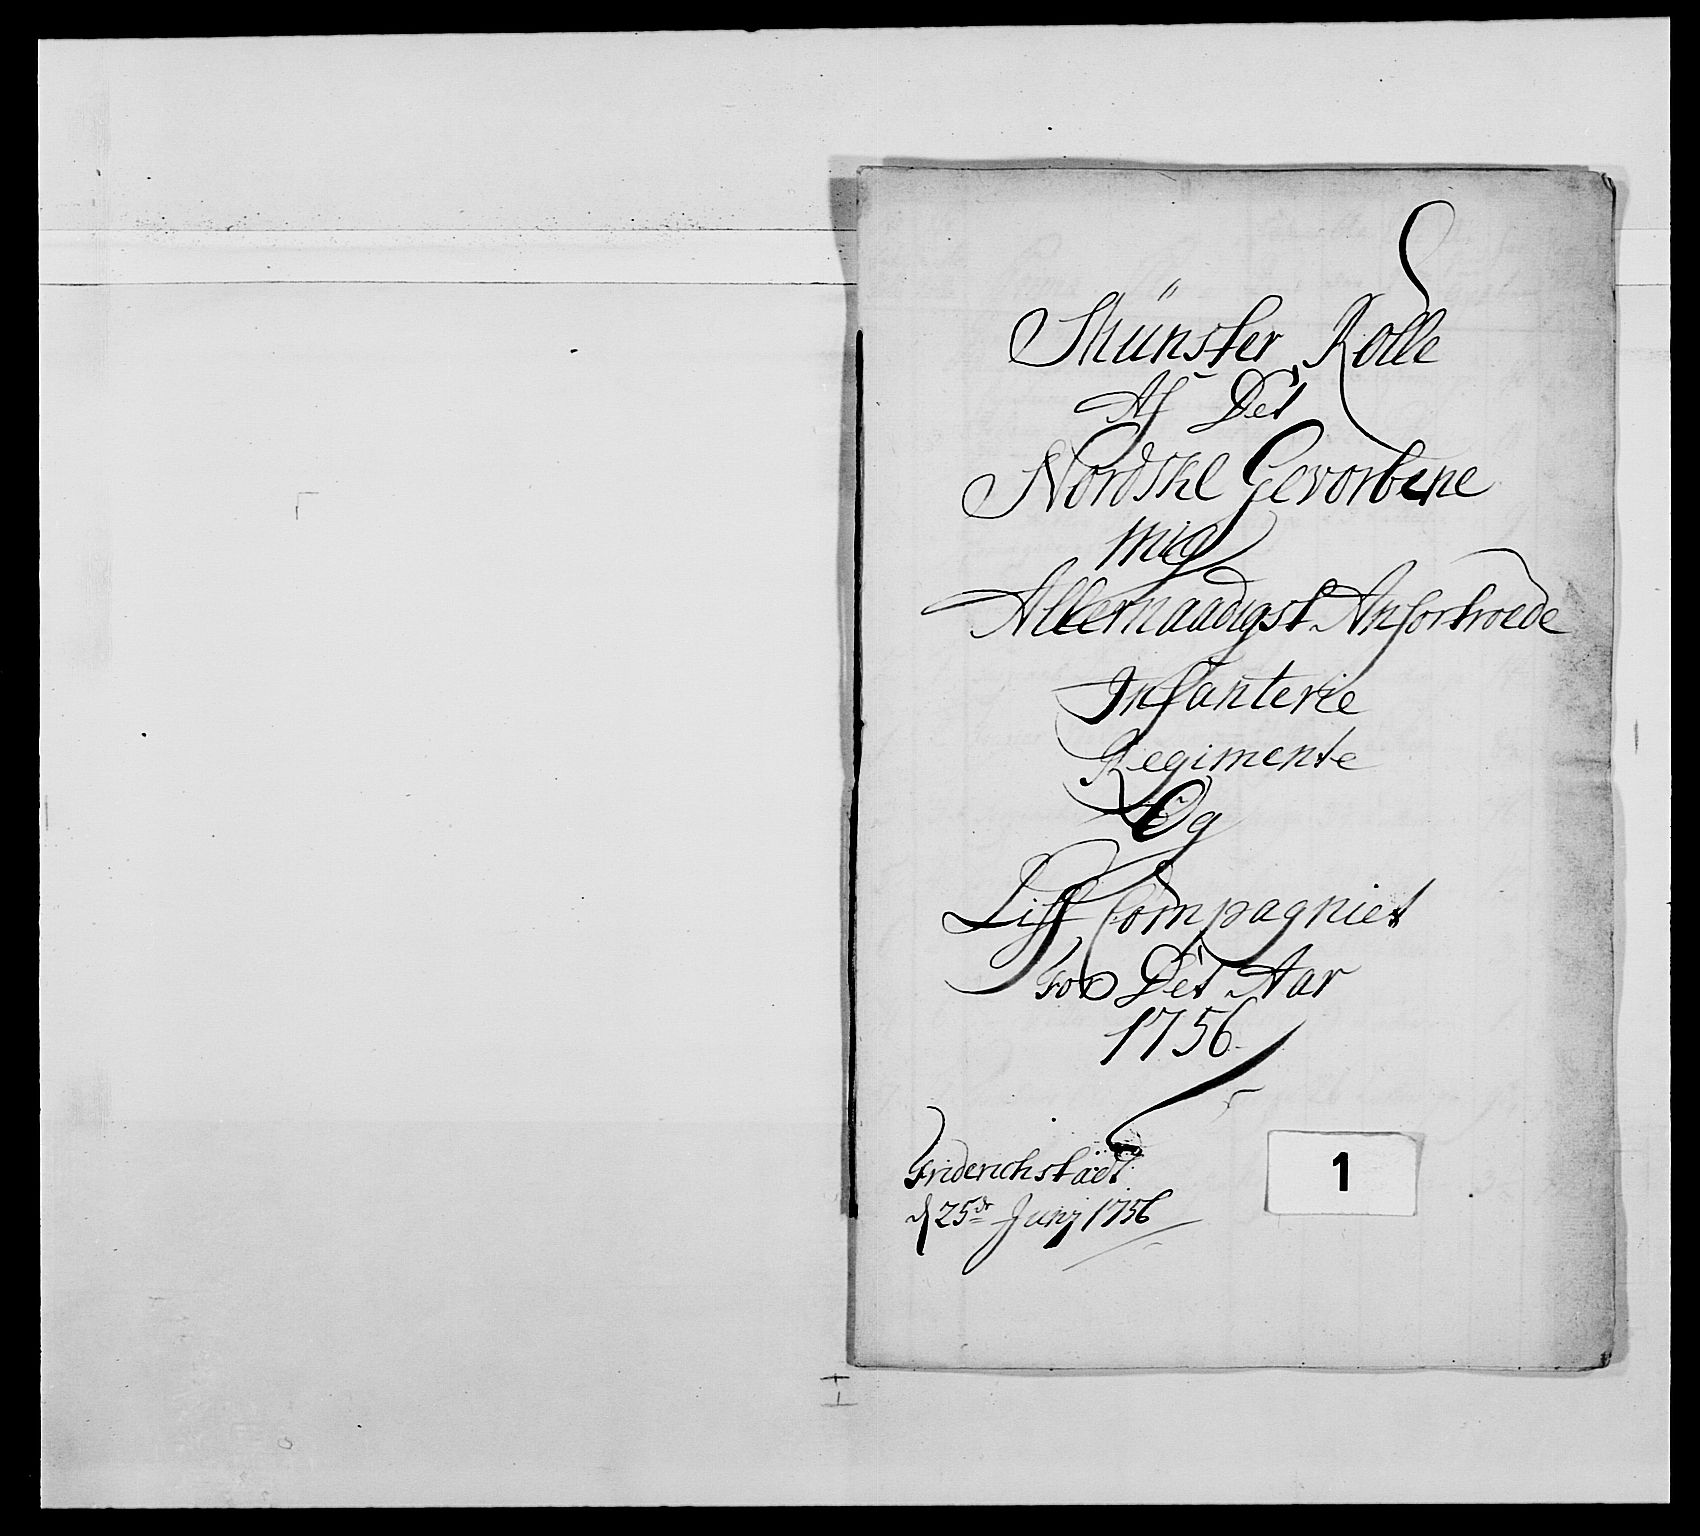 Münster Rolle
Af Det
Nordske Gevorbene
mig
Allernaadigst Anfortroede
Infanterie
Regimente
Og
Liff Compagniet
For Det Aar
1756
Friderichstadt
d 25de Junj 1756
1